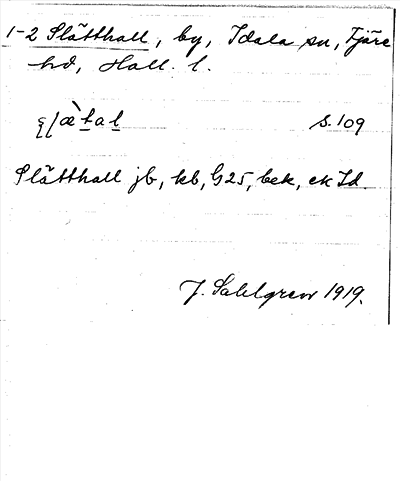 1-2 Slätthall, by, Idala sn, Fjäre
hd, Hall. l.
s. 109
Slätthall jb, kb, G25, bek, ek Id.
J. Sahlgren 1919.